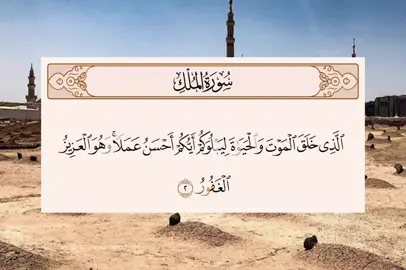 سُورَةُ الْمُلْكِ
الَّذِي خَلَقَ الْمَوْتَ وَالْحَيَاةَ لِيَبْلُوَكُمْ أَيُّكُمْ أَحْسَنُ عَمَلًا ۚ وَهُوَ الْعَزِيزُ
الْغَفُورُ ٢